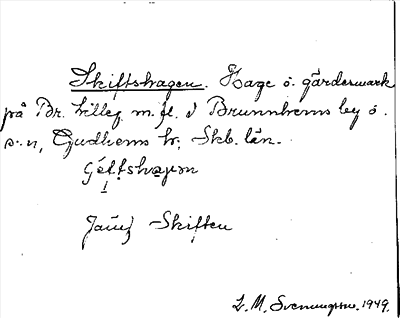 Skiftshagen. Hage o. gärdesmark
på Br. Killeg. m. fl. i Brunnhems by o.
s:n, Gudhems hd, Skb. län.
Jämf Skiften
L. M. Svenungsson. 1949.